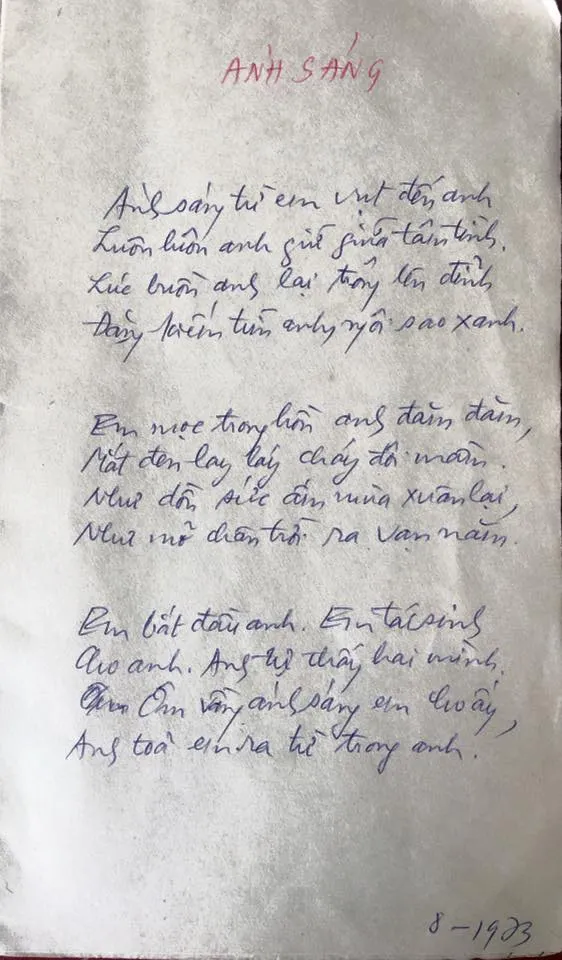 ÁNH SÁNG
Ánh sáng từ em vụt đến anh
Luôn luôn anh giữ giữa tâm tình.
Lúc buồn anh lại trông lên đỉnh
Đáy kiếm tìm anh ngôi sao xanh.
Em mọc trong hồn anh đăm đăm,
Mắt đen lay láy cháy đôi mầm.
Như dồn sức ấm mùa xuân lại,
Như mở chân trời ra vạn năm.
Em bắt đầu anh. Em tái sinh
Cho anh. Anh tự thấy hai mình.
Ôm vầng ánh sáng em cho ấy,
Anh toả em ra từ trong anh.
8 - 1973